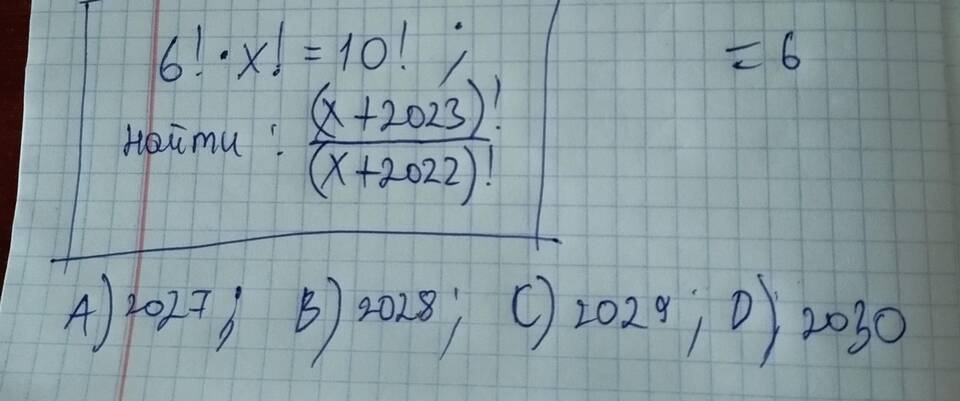 6! · x! = 10! ; = 6
найти : (x+2023)!
(x+2022)!
A) 2027; B) 2028; C) 2029; D) 2030